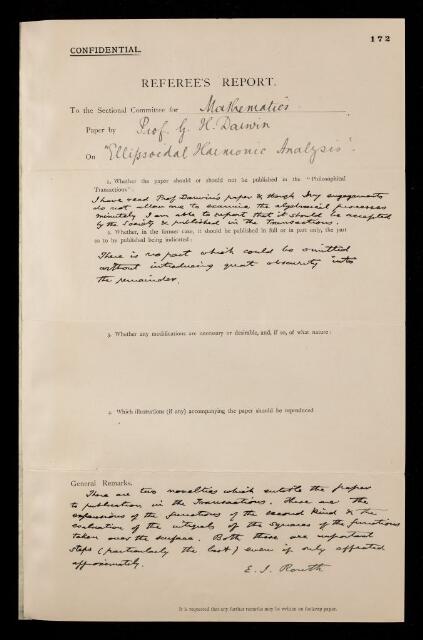 172
CONFIDENTIAL.
REFEREE'S REPORT.
To the Sectional Committee for Mathematics
Paper by Prof. G. H. Darwin
On "Ellipsoidal Harmonic Analysis".
1. Whether the paper should or should not be published in the "Philosophical
Transactions":
I have read Prof Darwin's paper & though my engagements
do not allow me to examine the algebraical processes
minutely I am able to report that it should be accepted
by the Society & published in the Transactions.
2. Whether, in the former case, it should be published in full or in part only, the part
so to be published being indicated:
There is no part which could be omitted
without introducing great obscurity into
the remainder.
3. Whether any modifications are necessary or desirable, and, if so, of what nature:
4. Which illustrations (if any) accompanying the paper should be reproduced
General Remarks.
There are two novelties which entitle the paper
to publication in the Transactions. These are the
expansions of the functions of the second kind & the
evaluation of the integrals of the squares of the functions
taken over the surface. Both these are important
steps (particularly the last) even if only effected
approximately.
E. J. Routh
It is requested that any further remarks may be written on foolscap paper.